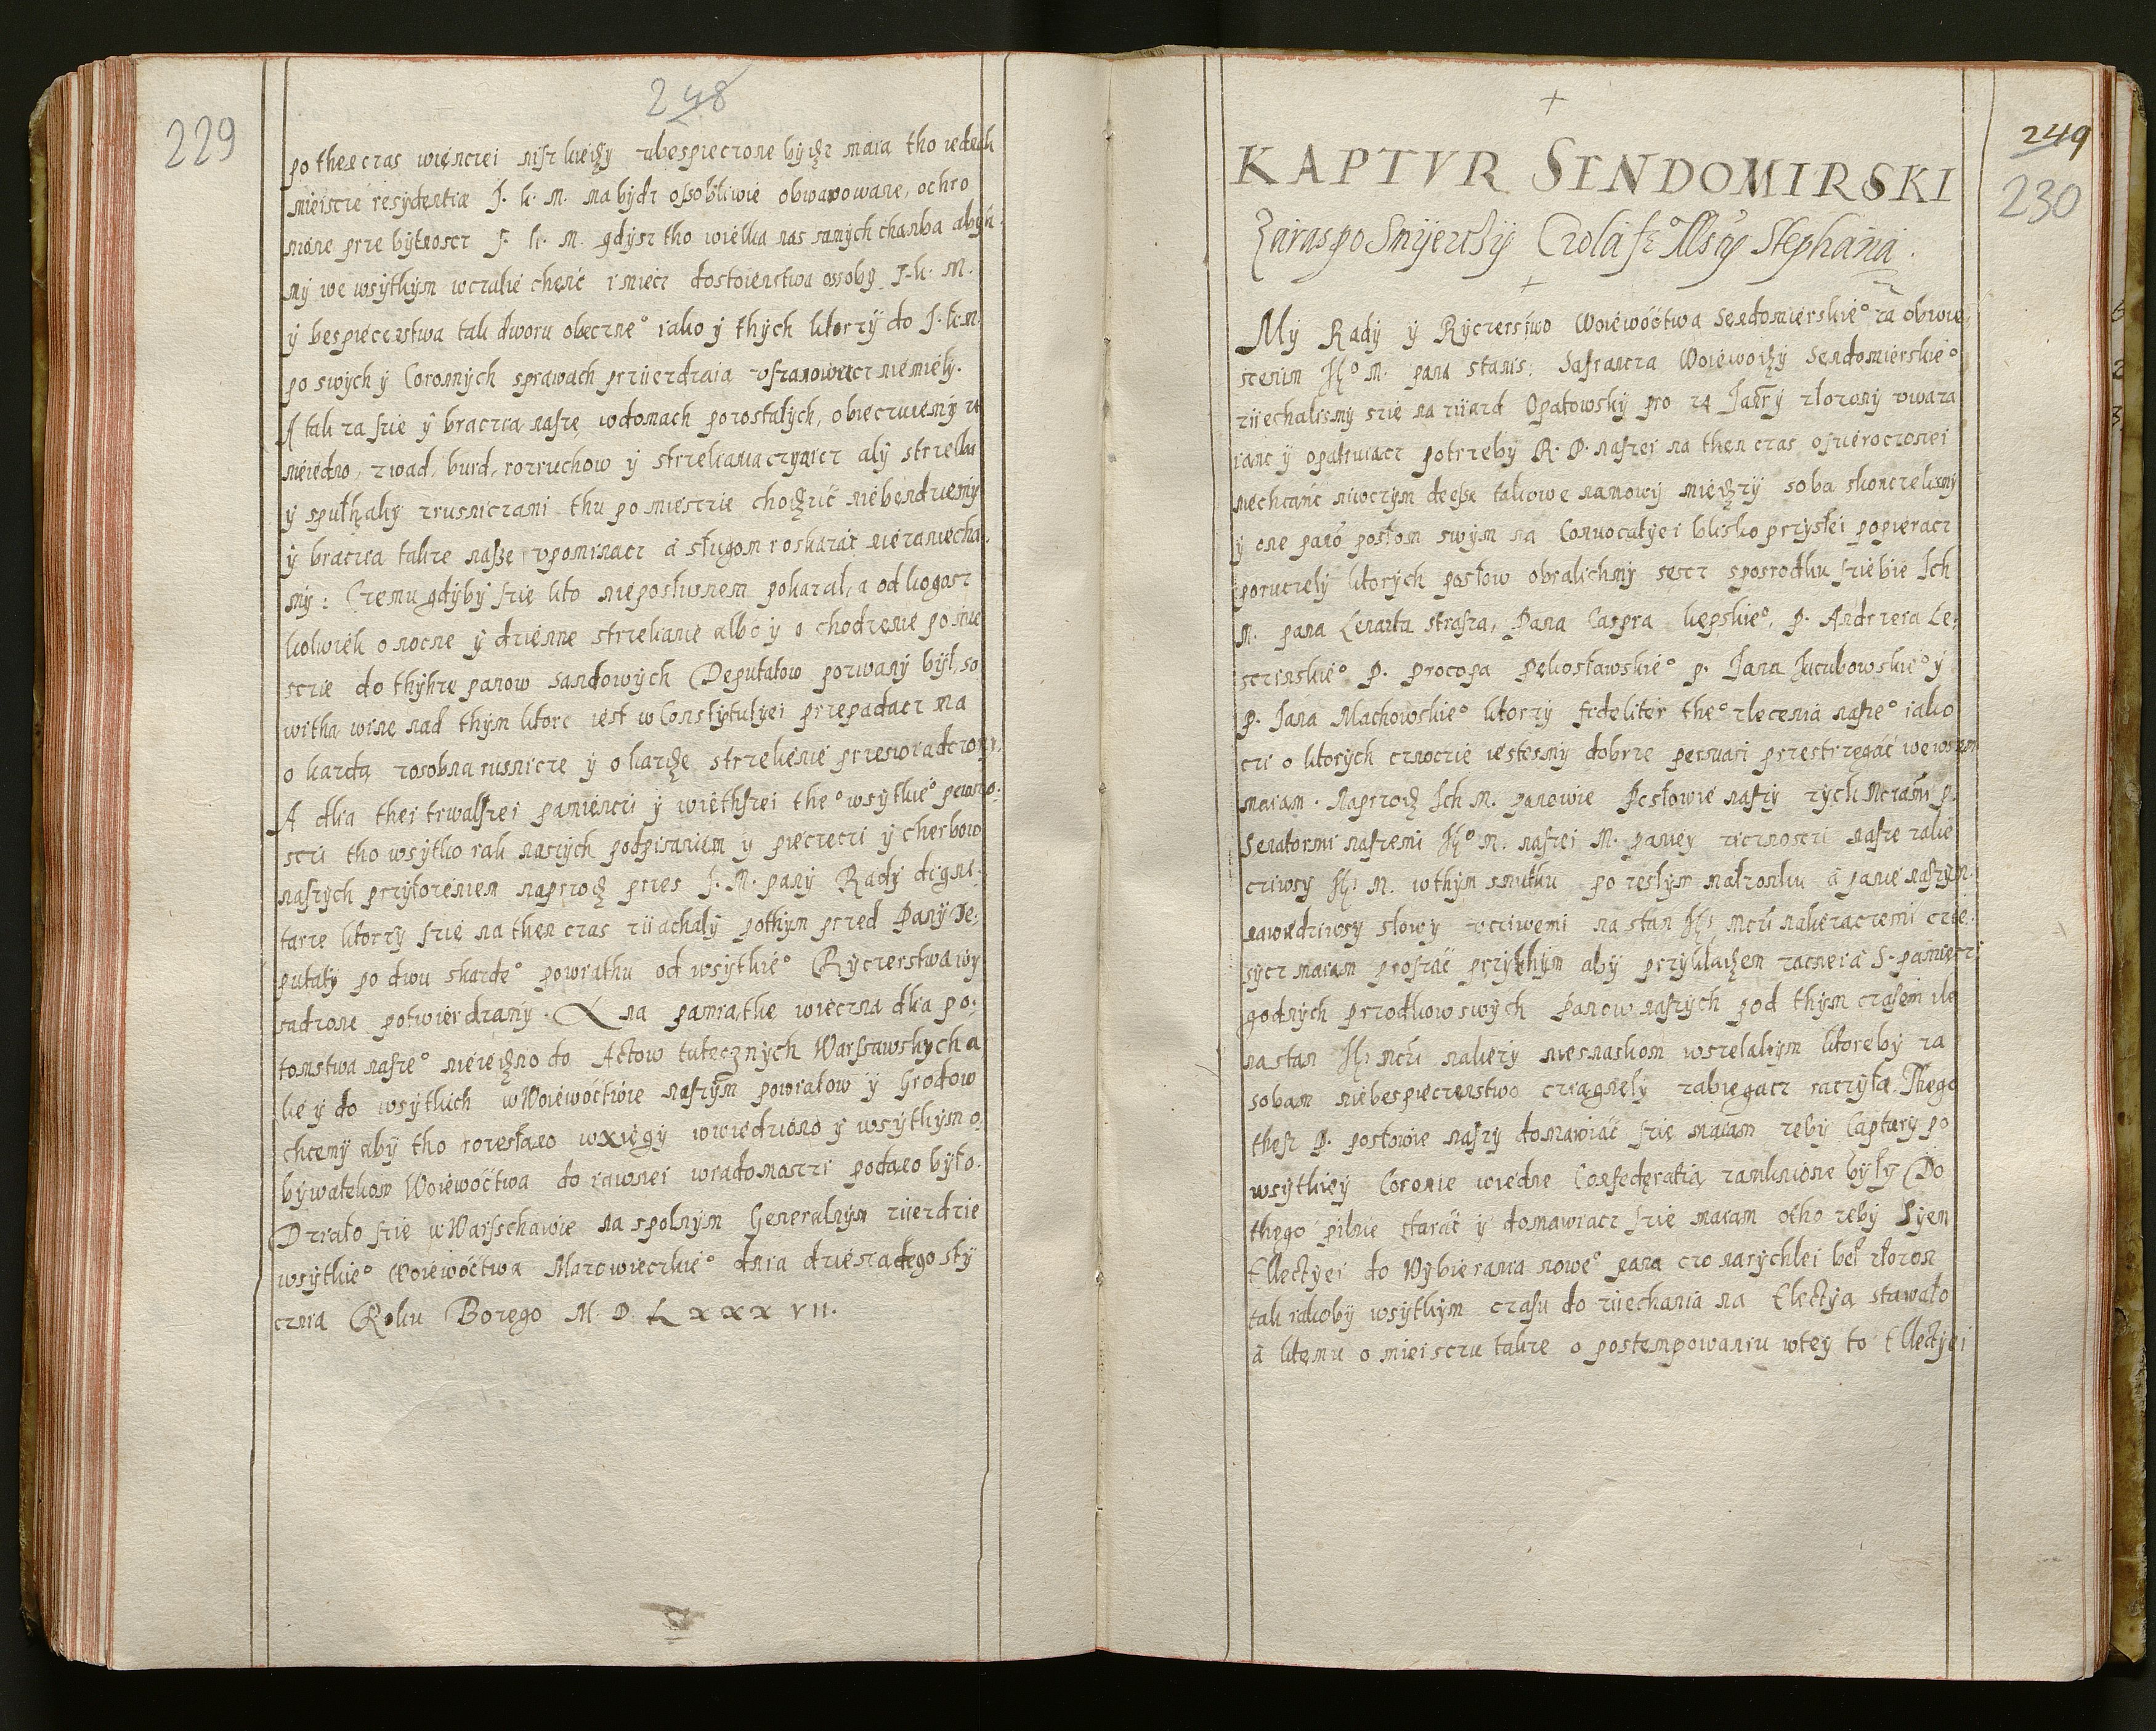 248
229
po then czas wienczei nisz kiedy ubespieczone bydz maia tho iednak
mieiscze residentiæ J. K. M. ma bydz ossobliwie obwarowane, ochro
nione prze bytnoscz J. K. M. gdysz tho wielka nas samych chanba abych
my we wsytkym wczalie chęnć i miecz dostoienstwa ossoby J. K. M.
y bespieczenstwa tak dworu obeczne° iako y thych ktorzy do J. K. M.
po swych y Coronnych sprawach prziiezdzaia uszanowacz niemiely.
A tak za szie y braczia nasze wdomach pozostalych, obieczuiemy ze
nieiedno, zwad, burd, rozruchow y strzeliania czynicz aly strzelbu
y spulhaky zrusniczami thu po miesczie chodzić niebendziemy
y braczia takze nasze upominacz a slugom roskazać niezaniecha
my: Czemu gdyby szie kto nieposlusnem pokazal, a od kogosz
kolwiek o nocne y dzienne strzelianie albo y o chodzenie po mie
sczie do thychze panow sandowych Deputatow pozwany był, so
witha wine nad thym ktore iest w Constytutyei przepadacz ma
o kazdą zosobna rusnicze y o kazde strzelienie przeswiadczony.
A dlia thei trwalszei pamienczi y wiethszei the° wsytkie° pewno:
sczi tho wsytko rąk naszych podpisaniem y pieczeczi y cherbow
naszych przyłozeniem naprzod przes J. M. pany Rady digni:
tarze ktorzy szie na then czas ziiachaly pothym przed Pany De:
putaty po dwu skazde° powiathu od wsytkie° Ryczerstwa wy
sadzone potwierdzamy. A na pamiatke wieczna dlia po:
tomstwa nasze° nieiedno do Actow tutecznych Warszawskych a
lie y do wsytkich w Woiewoctwie naszym powiatow y Grodow
chcemy aby tho rozesłano wxięgy wwiedziono y wsytkym o,
bywatelom Woiewoctwa do iawnei wiadomosczi podano było.
Działo szie w Warschawie na spolnym Generalnym ziiezdzie
wsytkie° Woiewoctwa Mazowieczkie° dnia dziesiątego sty
cznia Roku Bozego M. D. L x x x v i i.
249
230
KAPTVR SENDOMIRSKI
Zaras po Smyertsy Crola
Stephana.
My Rady y Ryczerstwo Woiewoctwa Sendomierskie° za obwie,
scenim Je° M. pana Stanis: Safrancza Woiewody Sendomierskie°
ziiechalismy szie na ziiazd Opatowsky pro 24 Janry złozony uwaza
ianc y opatruiacz potrzeby R. P. naszei na then czas osieroczonei
niechcanc niwczym deesse takowe namowy miedzy soba skonczelismy
y one pano posłom swym na Convocatyei blisko przyslei popieracz
poruczely ktorych posłow obralichmy sescz sposrodku siebie Ich
M. pana Lenarta Strasza, Pana Caspra Kepskie°, P. Andrzeia Le:
sczinskie° P. Procopa Pękosławskie° p. Jana Jacubowskie° y
P. Jana Machowskie° ktorzy fideliter the° zlecenia nasze° iako
czi o ktorych cznoczie iestesmy dobrze persuasi przestrzegać we wsem
maiam. Naprzod Ich M. panowie Posłowie naszy zych Mcziami p.
Senatormi naszemi Je° M. naszei M. paniey zicznosczi nasze zalie
cziwsy Jei M. wthym smutku po zesłym małzonku a panie naszym
nawiedziwsy słowy uczciwemi na stan Jei Mczi nalieżączemi czie:
sycz maiam proszać przythym aby przykładem zacnei a S. pamieczi
godnych przodkow swych Panow naszych pod thym czasem ile
na stan Jei Mczi należy niesnaskom wszelakym ktoreby za
sobam niebespieczenstwo cziągnęly zabiegacz raczyła. Thego
thesz P. posłowie naszy domawiać szie maiam zeby Captury po
wsytkiey Coronie wiedne Confederatią zamknione były Do
thego pilnie starać y domawiacz szie maiam otho zeby Syem
Ellectyei do Wybierania nowe° pana czo narychlei beł złozon
tak iakoby wsytkym czasu do ziiechania na Electya stawało
a ktemu o mieisczu takze o postempowaniu wtey to Ellectyei